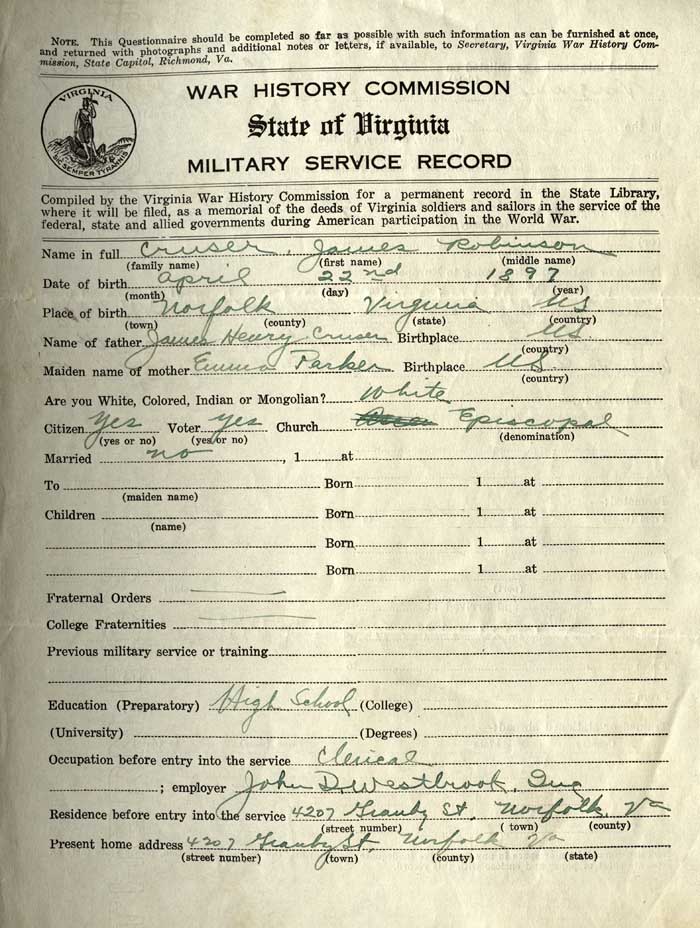 NOTE. This Questionnaire should be completed so far as possible with such information as can be furnished at once,
and returned with photographs and additional notes or letters, if available, to Secretary, Virginia War History Com-
mission, State Capitol, Richmond, Va.
VIRGINIA
SIC SEMPER TYRANNIS
WAR HISTORY COMMISSION
State of Virginia
MILITARY SERVICE RECORD
Compiled by the Virginia War History Commission for a permanent record in the State Library,
where it will be filed, as a memorial of the deeds of Virginia soldiers and sailors in the service of the
federal, state and allied governments during American participation in the World War.
Name in full Cruser, James Robinson
(family name) (first name) (middle name)
Date of birth April 22nd 1897
(month) (day) (year)
Place of birth Norfolk Virginia US
(town) (county) (state) (country)
Name of father James Henry Cruser Birthplace US
(country)
Maiden name of mother Emma Parker Birthplace US
(country)
Are you White, Colored, Indian or Mongolian? White
Citizen yes Voter yes Church Episcopal
(yes or no) (yes/or no) (denomination)
Married no , 1 at
To Born 1 at
(maiden name)
Children Born 1 at
(name)
Born 1 at
Born 1 at
Fraternal Orders
College Fraternities
Previous military service or training
Education (Preparatory) High School (College)
(University) (Degrees)
Occupation before entry into the service Clerical
; employer John D Westbrook, Inc
Residence before entry into the service 4207 Granby St, Norfolk, Va
(street number) (town) (county)
Present home address 4207 Granby St, Norfolk Va
(street number) (town) (county) (state)